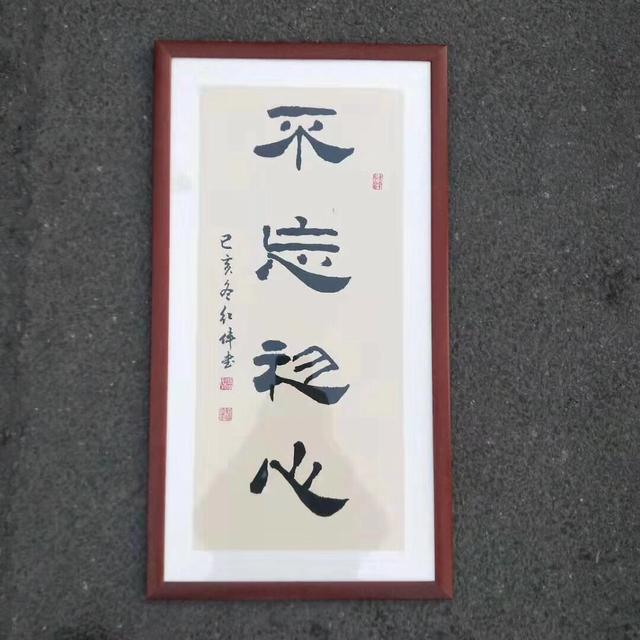 不忘初心
己亥冬红伟书